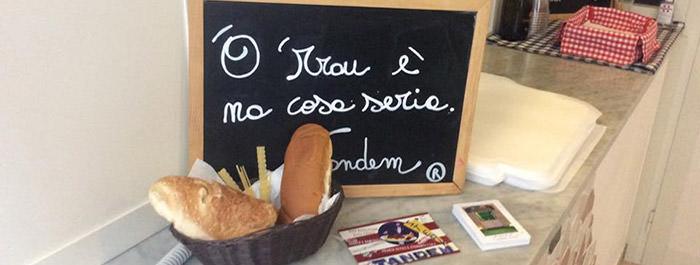 'O 'Rrau è
na cosa seria.
Tandem ®
TANDEM